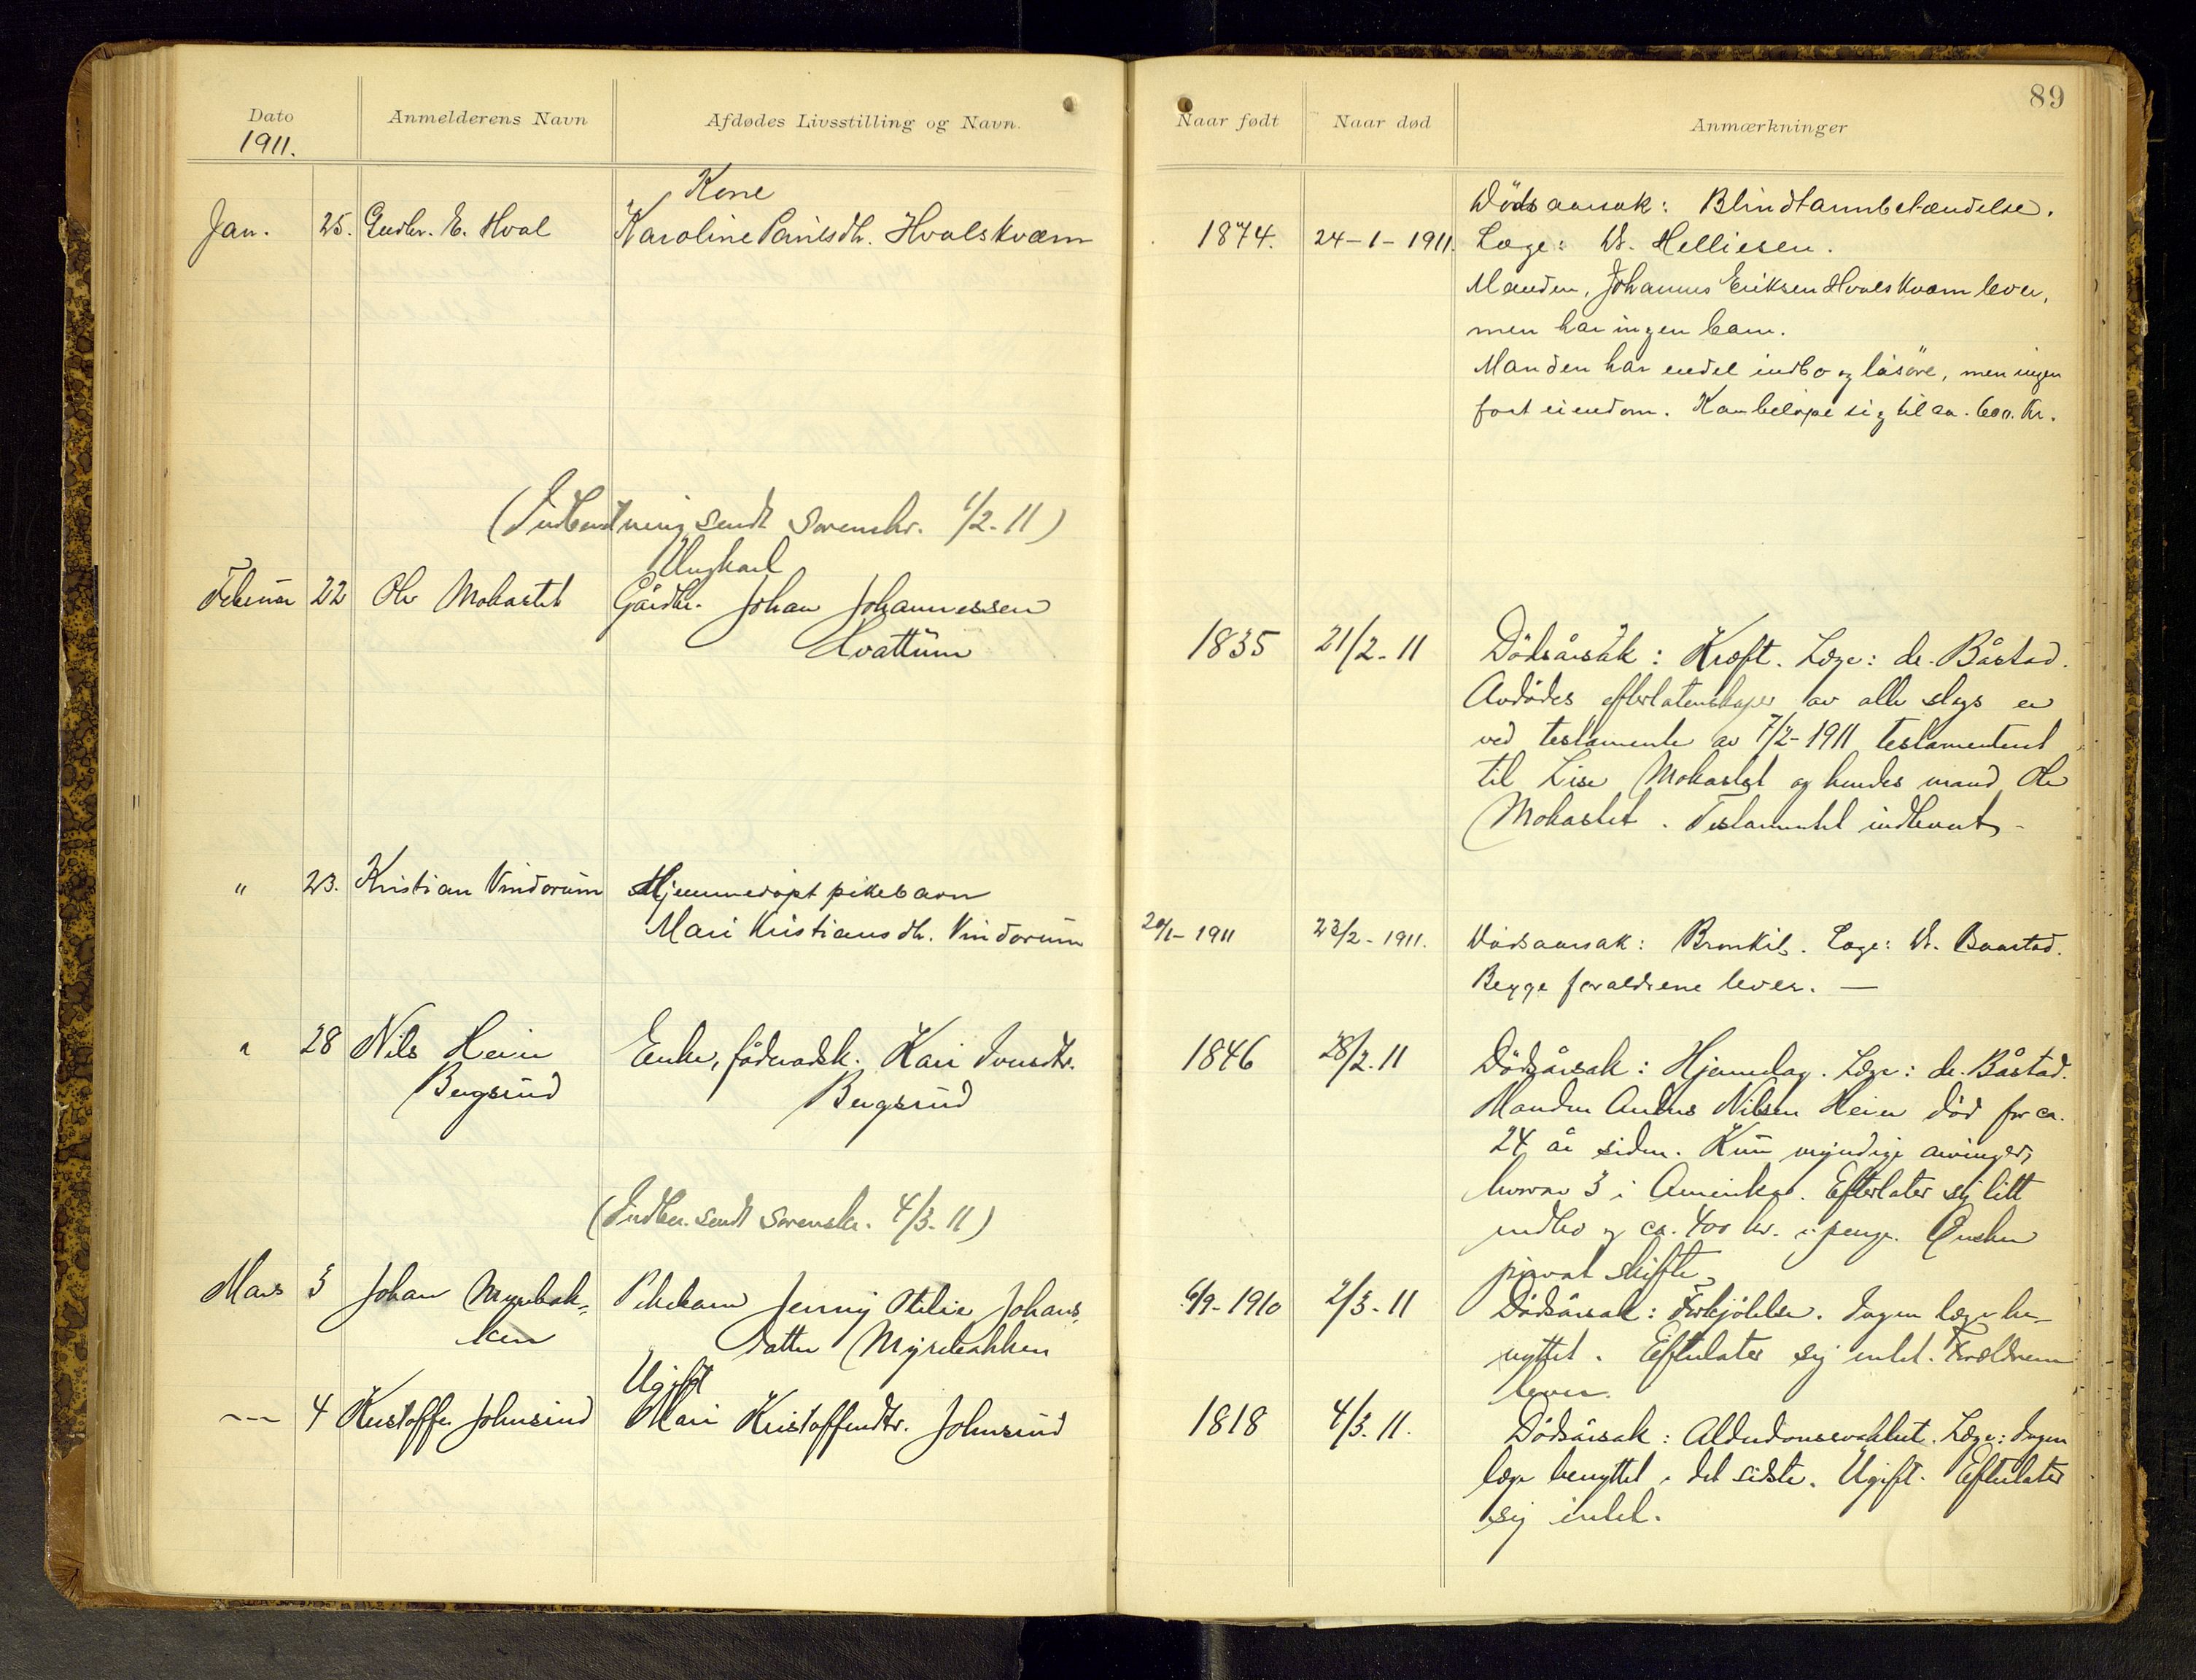 89
Dato
1911.
Anmelderens Navn
Afdødes Livsstilling og Navn.
Naar født
Naar død
Anmærkninger
Jan. 25. Gudbr. E. Hval
Kone
Karoline Paulsdtr. Hvalskværn
1874.
24-1-1911.
Dödsaarsak: Blindtarmbetændelse.
Læge: Dr. Helliesen.
Manden, Johannes Eriksen Hvalskværn lever,
men har ingen barn.
Manden har endel indbo og lösöre, men ingen
fast eiendom. Kan belöpe sig til ca. 600. Kr.
(Indberetning sendt Sorenskr. 1/2-11)
Februar 22 Ole Mokastet
Ungkarl
Gårdbr. Johan Johannessen
Kvattum
1835
21/2-11
Dödsårsak: Kræft. Læge: dr. Båstad.
Avdödes efterlatenskaper av alle slags er
ved testamente av 7/2-1911 testamentert
til Lise Mokastet og hendes mand Ole
Mokastet. Testamentet indlevert.
" 23. Kristian Vindorum
Hjemmedöpt pikebarn
Mari Kristiansdtr. Vindorum
20/1-1911
23/2-1911.
Dödsaarsak: Bronkit. Læge: Dr. Baastad.
Begge forældrene lever. —
" 28 Nils Heier
Bergsrud
Enke, föderådsk. Kari Iversdtr.
Bergsrud
1846
28/2.11
Dödsårsak: Hjerneslag. Læge: dr. Båstad.
Manden Anders Nilsen Heier död for ca.
24 år siden. Kun myndige arvinger,
hvorav 3 i Amerika. Efterlater sig litt
indbo og ca. 400 kr. i penge. Önsker
privat skifte.
(Indber. sendt Sorenskr. 4/3-11)
Mars 3 Johan Myrbak-
ken
Pikebarn Jenny Otilie Johans-
datter Myrebakken
6/9-1910
2/3-11
Dödsårsak: Forkjölelse. Ingen læge be-
nyttet. Efterlater sig intet. Forældrene
lever.
-"- 4 Kristoffer Johnsrud
Ugift
Mari Kristoffersdtr. Johnsrud
1818
4/3.11.
Dödsårsak: Alderdomssvakhet. Læge: Ingen
læge benyttet i det sidste. Ugift. Efterlater
sig intet.